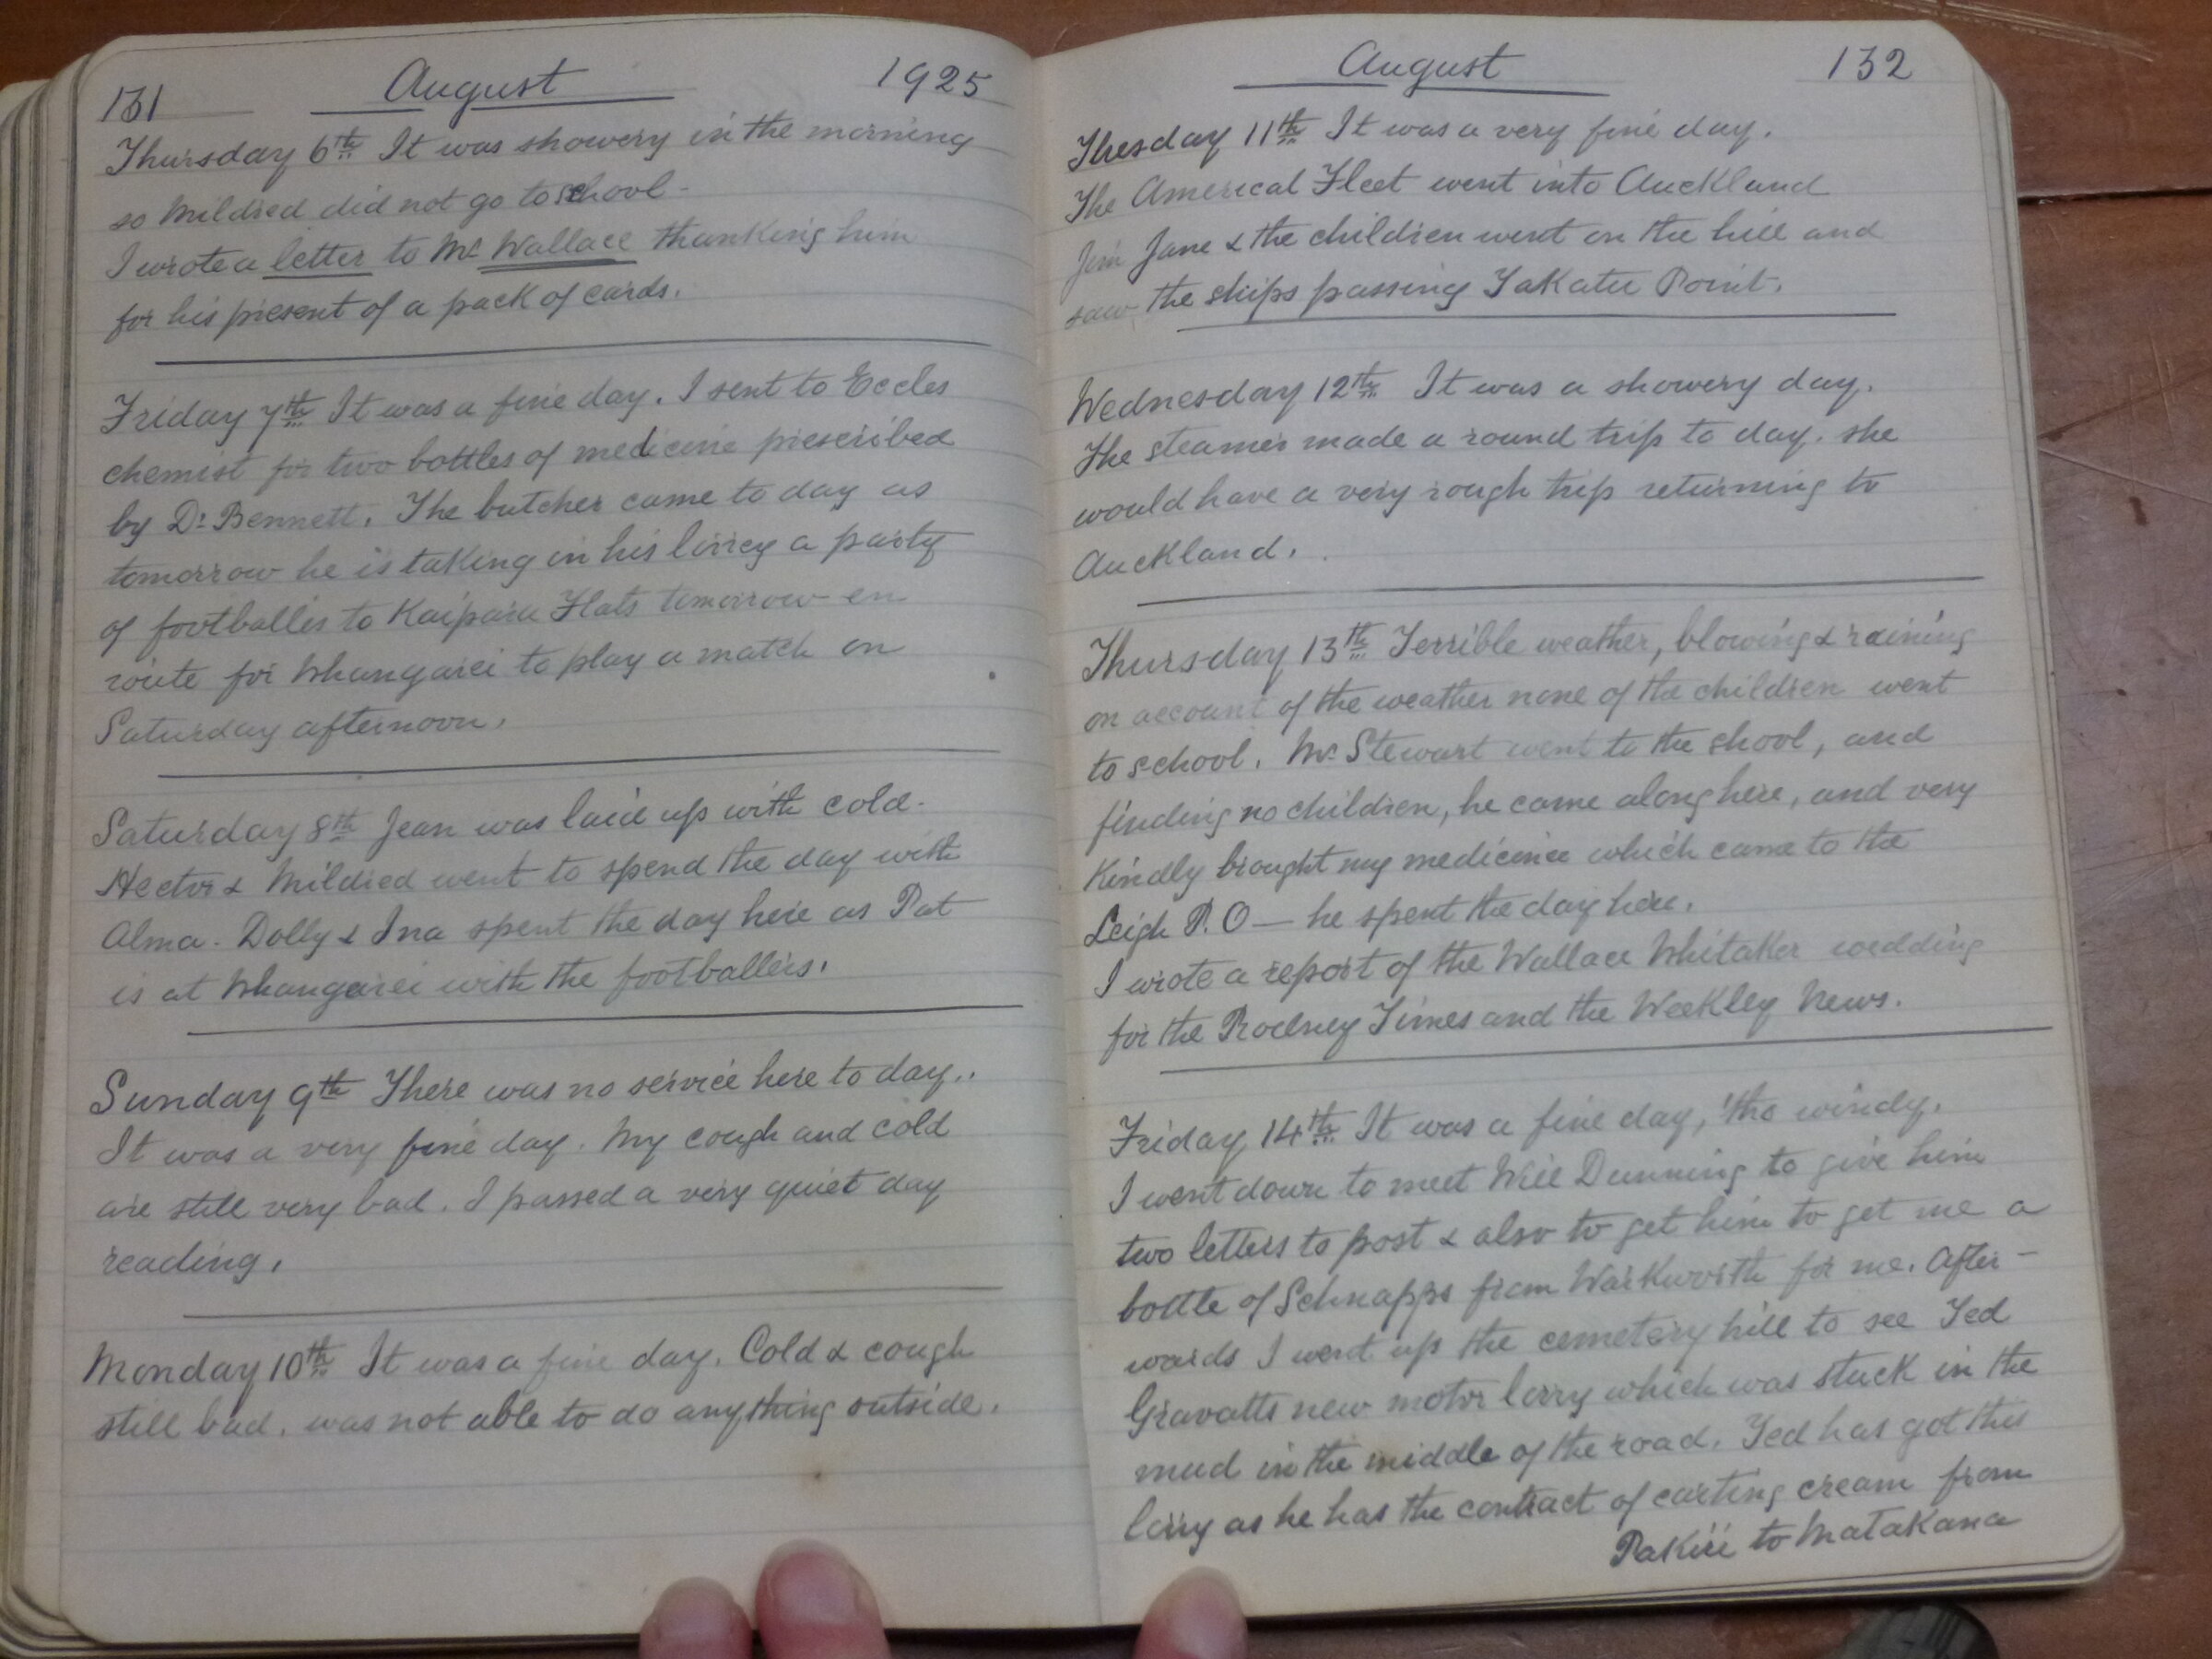 131 August 1925
Thursday 6th It was showery in the morning
so Mildred did not go to school -
I wrote a letter to Mr Wallace thanking him
for his present of a pack of cards.
Friday 7th It was a fine day. I sent to Eccles
chemist for two bottles of medicine prescribed
by Dr Bennett. The butcher came to day as
tomorrow he is taking in his lorrey a party
of footballes to Kaipara Flats tomorrow en
route for Whangarei to play a match on
Saturday afternoon.
Saturday 8th Jean was laid up with cold.
Hector & Mildred went to spend the day with
Alma. Dolly & Ina spent the day here as Pat
is at Whangarei with the footballers.
Sunday 9th There was no service here to day..
It was a very fine day. My cough and cold
are still very bad. I passed a very quiet day
reading.
Monday 10th It was a fine day. Cold & cough
still bad. was not able to do anything outside.
August 132
Thesday 11th It was a very fine day.
The Americal Fleet went into Auckland
Jim Jane & the children went on the hill and
saw the ships passing Takatu Point.
Wednesday 12th It was a showery day.
The steamer made a round trip to day. she
would have a very rough trip returning to
Auckland.
Thursday 13th Terrible weather, blowing & raining
on account of the weather none of the children went
to school. Mr Stewart went to the shool, and
finding no children, he came along here, and very
kindly brought my medicince which came to the
Leigh P. O — he spent the day here.
I wrote a report of the Wallace Whitaker wedding
for the Rodney Times and the Weekley News.
Friday 14th It was a fine day, 'tho windy.
I went down to meet Will Dunning to give him
two letters to post & also to get him to get me a
bottle of Schnapps from Warkworth for me. After -
wards I went up the cemetery hill to see Ted
Gravatts new motor lorry which was stuck in the
mud in the middle of the road. Ted has got this
lorry as he has the contract of carting cream from
Pakiri to Matakana